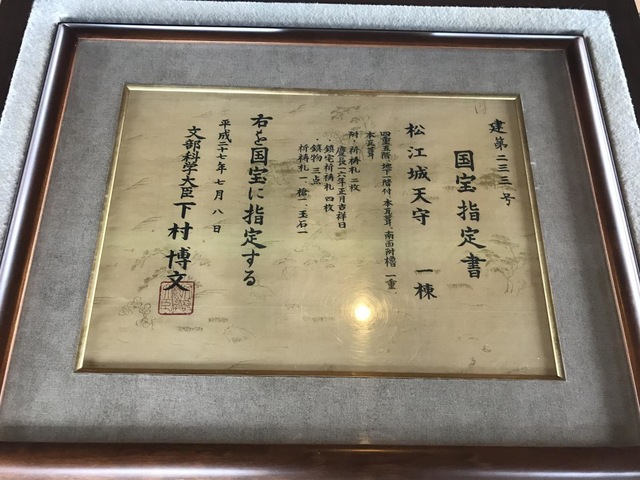 建第二三三号
国宝指定書
松江城天守 一棟
四重五階 地下一階付、本瓦葺、南面附櫓 一重、
本瓦葺
附・祈祷札 二枚
慶長一六年正月吉祥日
・鎮宅祈祷札 四枚
・鎮物 三点
祈祷札一、槍一、玉石一
右を国宝に指定する
平成二十七年七月八日
文部科学大臣 下村博文